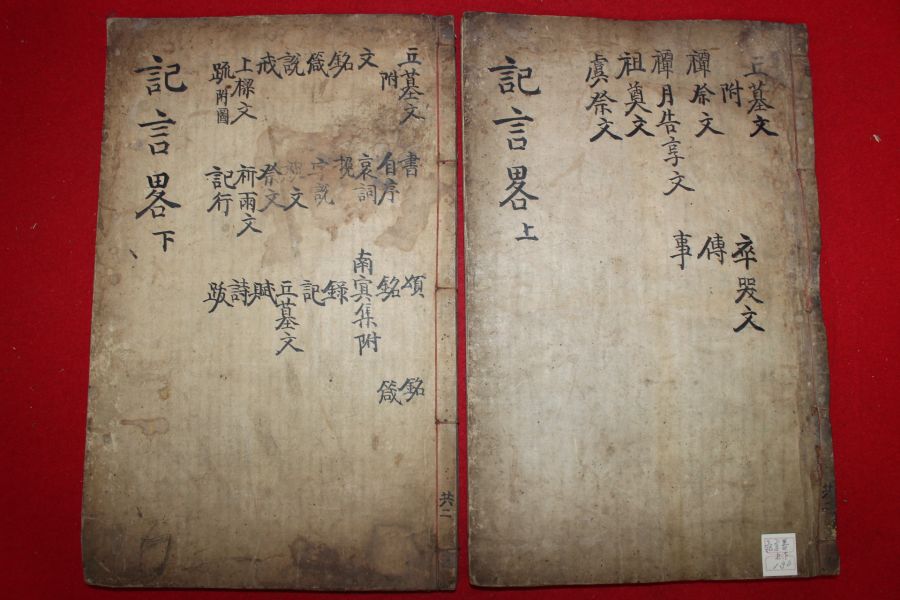 丘墓文 卒哭文
附
禫祭文 傳
禫月告享文 事
祖奠文
虞祭文
記言畧 上
丘墓文 書 頌 銘
附 自序 銘 箴
文 哀詞 南冥集附
銘 挽 錄
箴 字說 記
說 文 丘墓文
戒 祭文 賦
上樑文 祈雨文 詩
䟽附圖 記行 跋
記言畧 下
共二